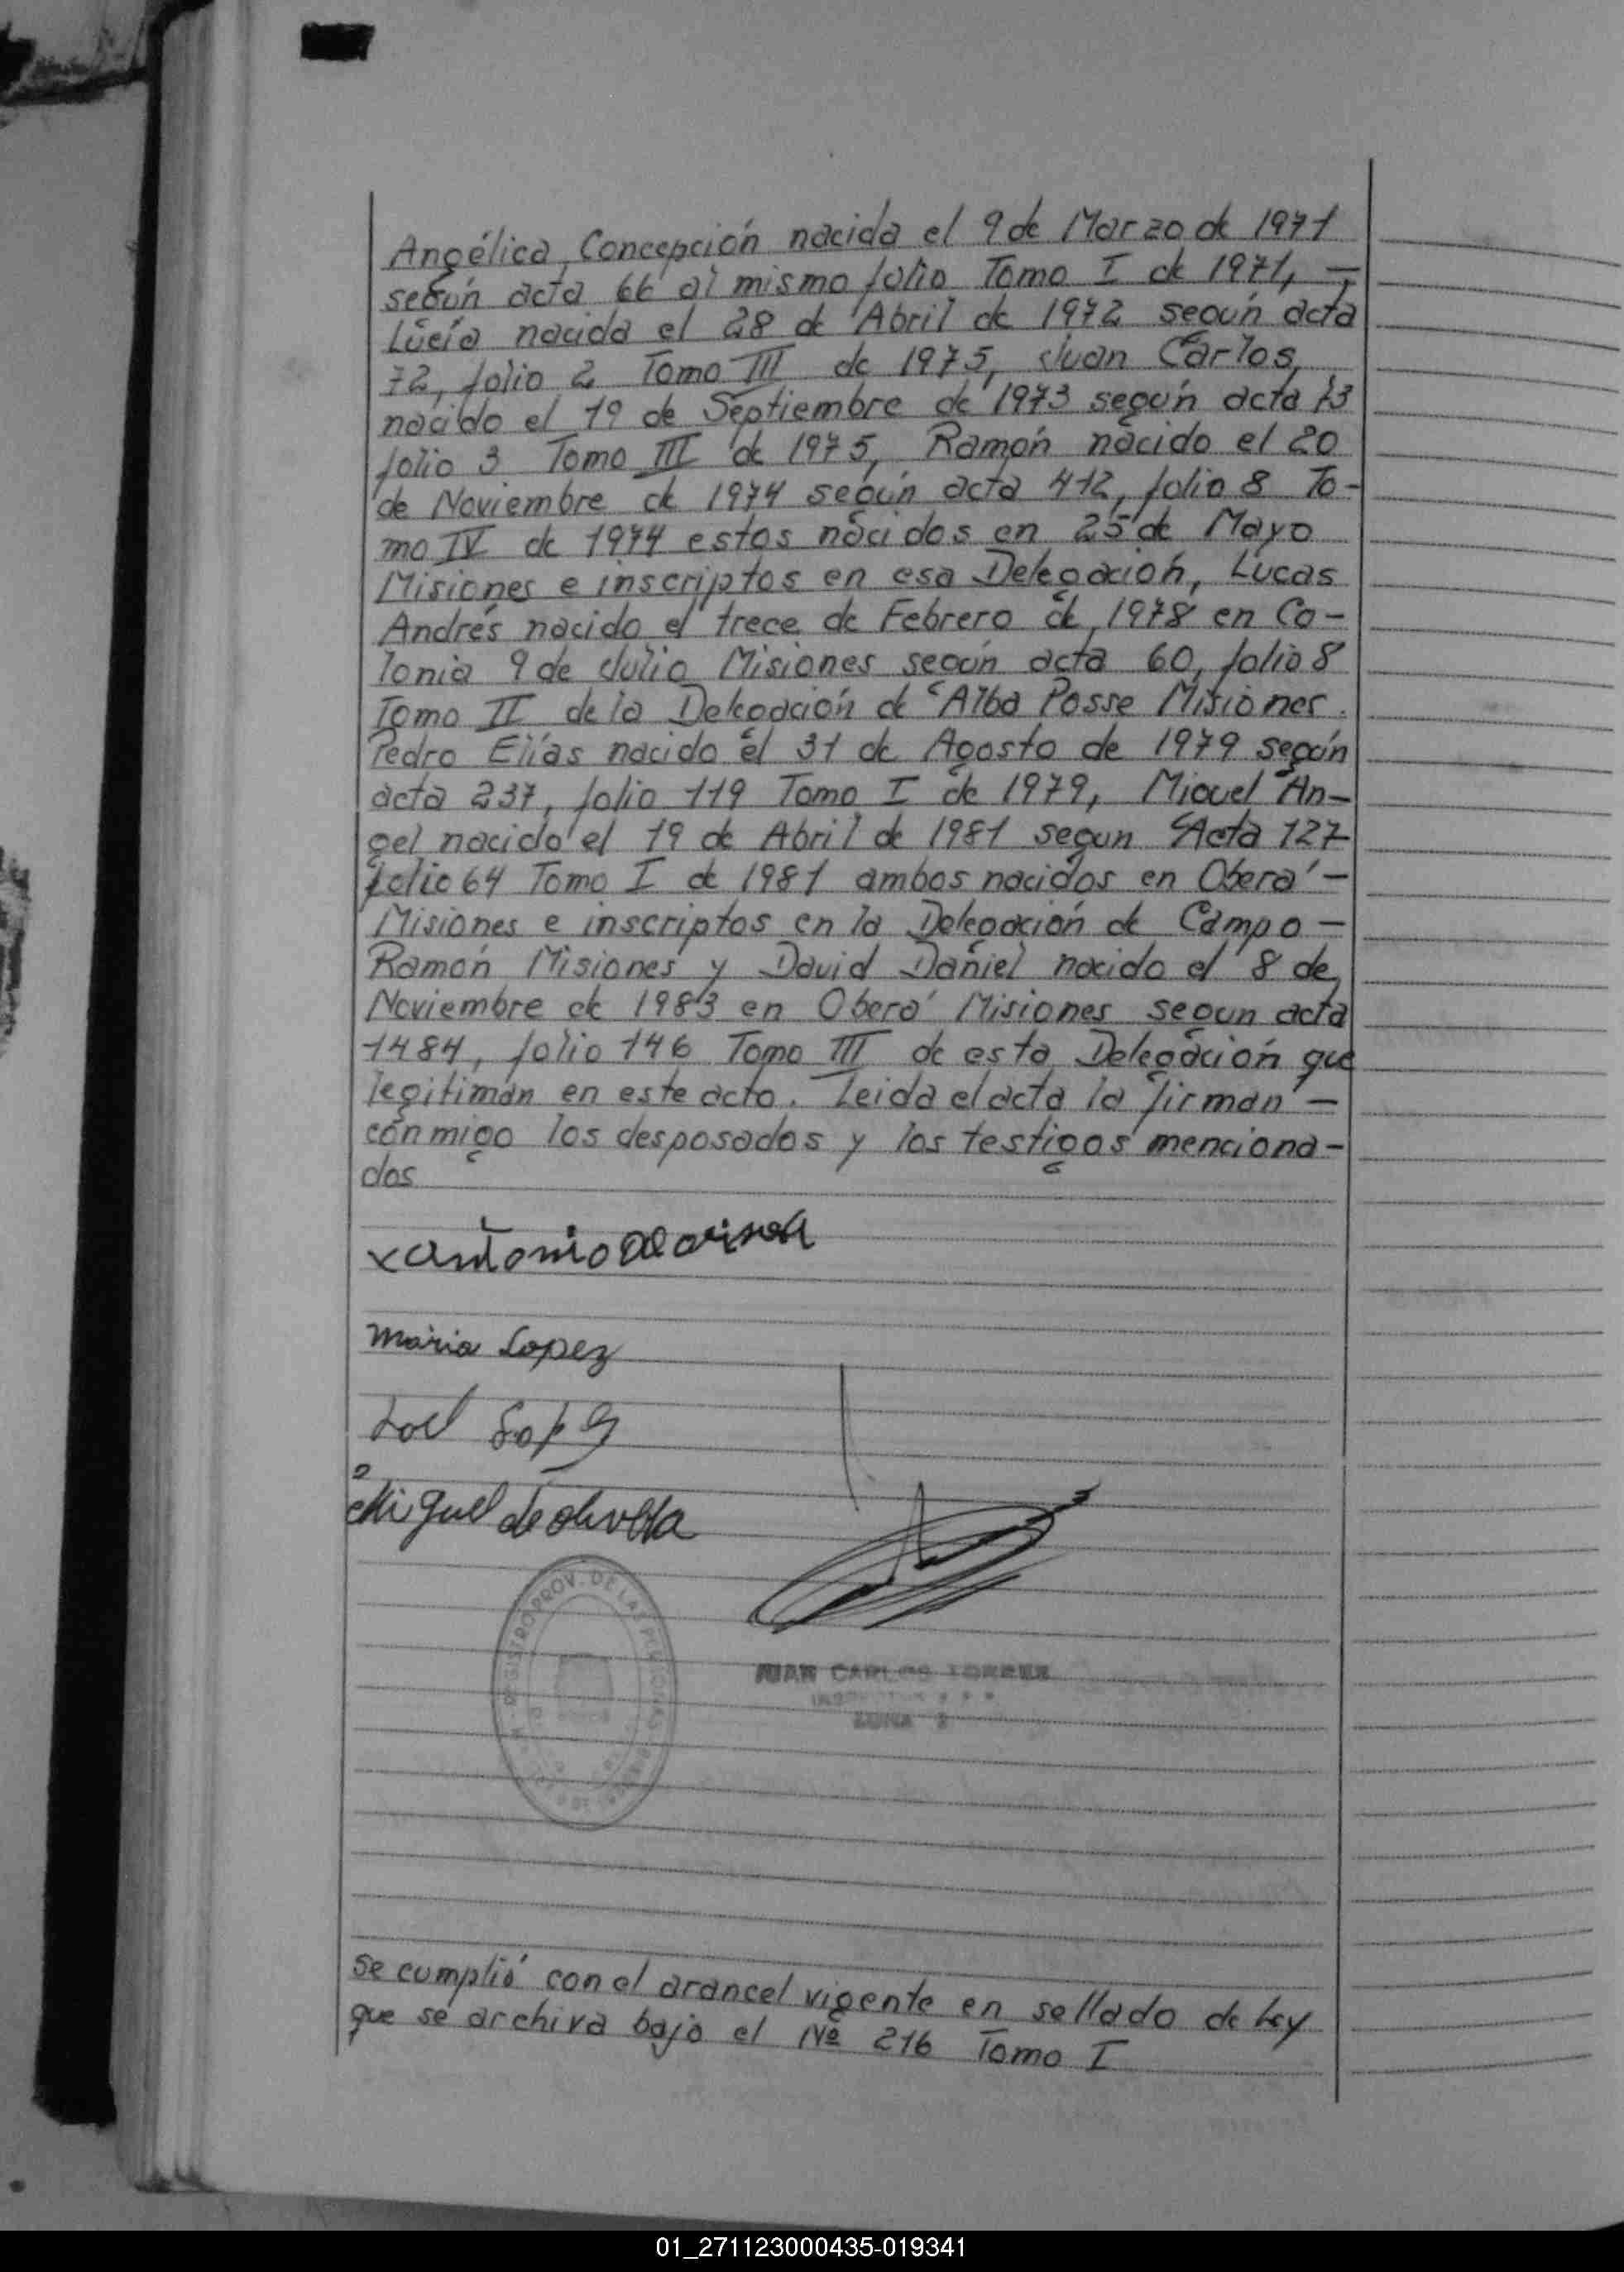 Angélica, Concepción nacida el 9 de Marzo de 1971
según acta 66 al mismo folio Tomo I de 1971, —
Lucía nacida el 28 de Abril de 1972 según acta
72, folio 2 Tomo III de 1975, Juan Carlos,
nacido el 19 de Septiembre de 1973 según acta 73
folio 3 Tomo III de 1975, Ramón nacido el 20
de Noviembre de 1974 según acta 412, folio 8 To-
mo IV de 1974 estos nacidos en 25 de Mayo
Misiones e inscriptos en esa Delegación, Lucas
Andrés nacido el trece de Febrero de 1978 en Co-
lonia 9 de Julio Misiones según acta 60, folio 8
Tomo II de la Delegación de Alba Posse Misiones.
Pedro Elías nacido el 31 de Agosto de 1979 según
acta 237, folio 119 Tomo I de 1979, Miguel An-
gel nacido el 19 de Abril de 1981 segun Acta 127
folio 64 Tomo I de 1981 ambos nacidos en Oberá —
Misiones e inscriptos en la Delegación de Campo —
Ramón Misiones y David Daniel nacido el 8 de
Noviembre de 1983 en Oberá Misiones segun acta
1484, folio 146 Tomo III de esta Delegación que
legitiman en este acto. Leida el acta la firman —
conmigo los desposados y los testigos menciona-
dos
x Antonio
Maria Lopez
Miguel de
REGISTRO PROV. DE LAS PERSONAS
JUAN CARLOS TORRES
ZONA 2
Se cumplió con el arancel vigente en sellado de Ley
que se archiva bajo el Nº 216 Tomo I
01_271123000435-019341